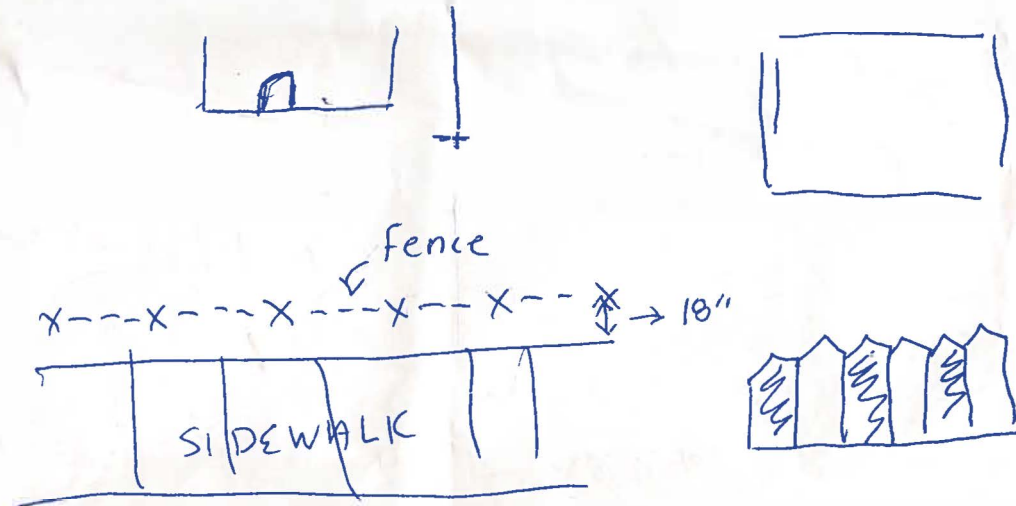 fence
X---X---X---X--X--X → 18"
SIDEWALK